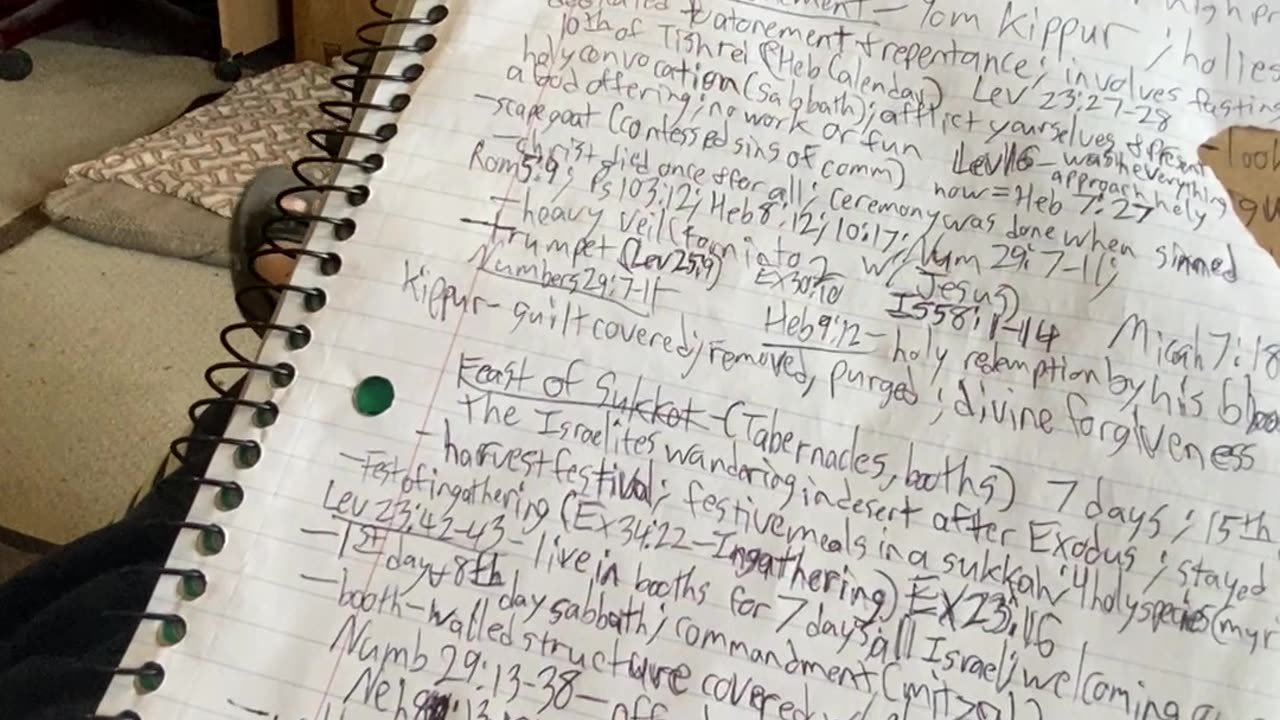 Yom Kippur ; holies
dedicated to atonement & repentance; involves fasting
10th of Tishrei (Heb Calendar) Lev 23:27-28
holy convocation (Sabbath); afflict yourselves & present
a God offering; no work or fun Lev 16 - wash everything
-scapegoat (confessed sins of comm) approach hely
-Christ died once & for all; now = Heb 7:27
Rom 5:9; Ps 103:12; Heb 8:12; 10:17; ceremony was done when sinned
-heavy veil (torn into 2 w/ Jesus) Num 29:7-11;
-trumpet (Lev 25:9) Ex 30:10 Is 58:1-14 Micah 7:18
Numbers 29:7-11 Heb 9:12 - holy redemption by his blood
Kippur - guilt covered; removed, purged; divine forgiveness
Feast of Sukkot - (Tabernacles, booths) 7 days; 15th
the Israelites wandering in desert after Exodus; stayed
-harvest festival; festive meals in a sukkah; 4 holy species (myr
-Fest of ingathering (Ex 34:22 - Ingathering) Ex 23:16
Lev 23:42-43 - live in booths for 7 days; all Israel; welcoming
-1st day & 8th day sabbath; commandment (mitz
-booth - walled structure covered
Numb 29:13-38 - off
Neh